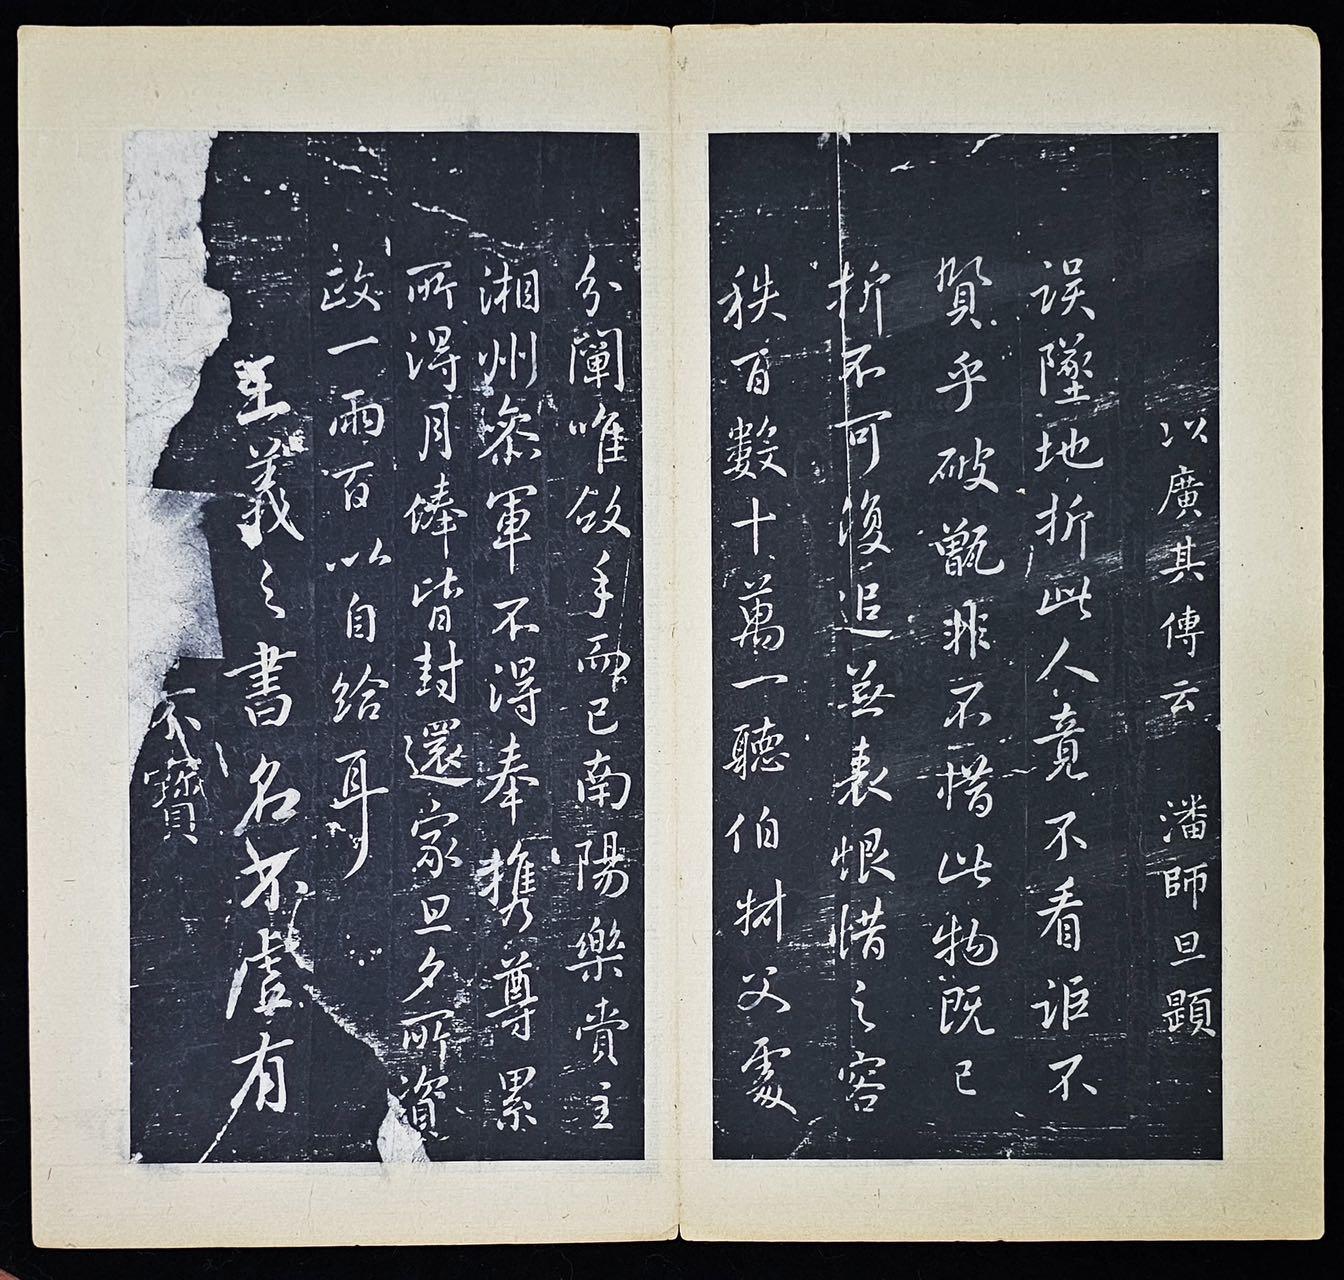 以廣其傳云　潘師旦題
誤墜地折此人竟不看詎不
賢乎破甑非不惜此物既已
折不可復追無表恨惜之容
秩百數十萬一聽伯財父處
分闡唯斂手而已南陽樂賞主
湘州參軍不得奉攜尊累
所得月俸皆封還家旦夕所資
政一兩百以自給耳
王羲之書名不虛有
不寶